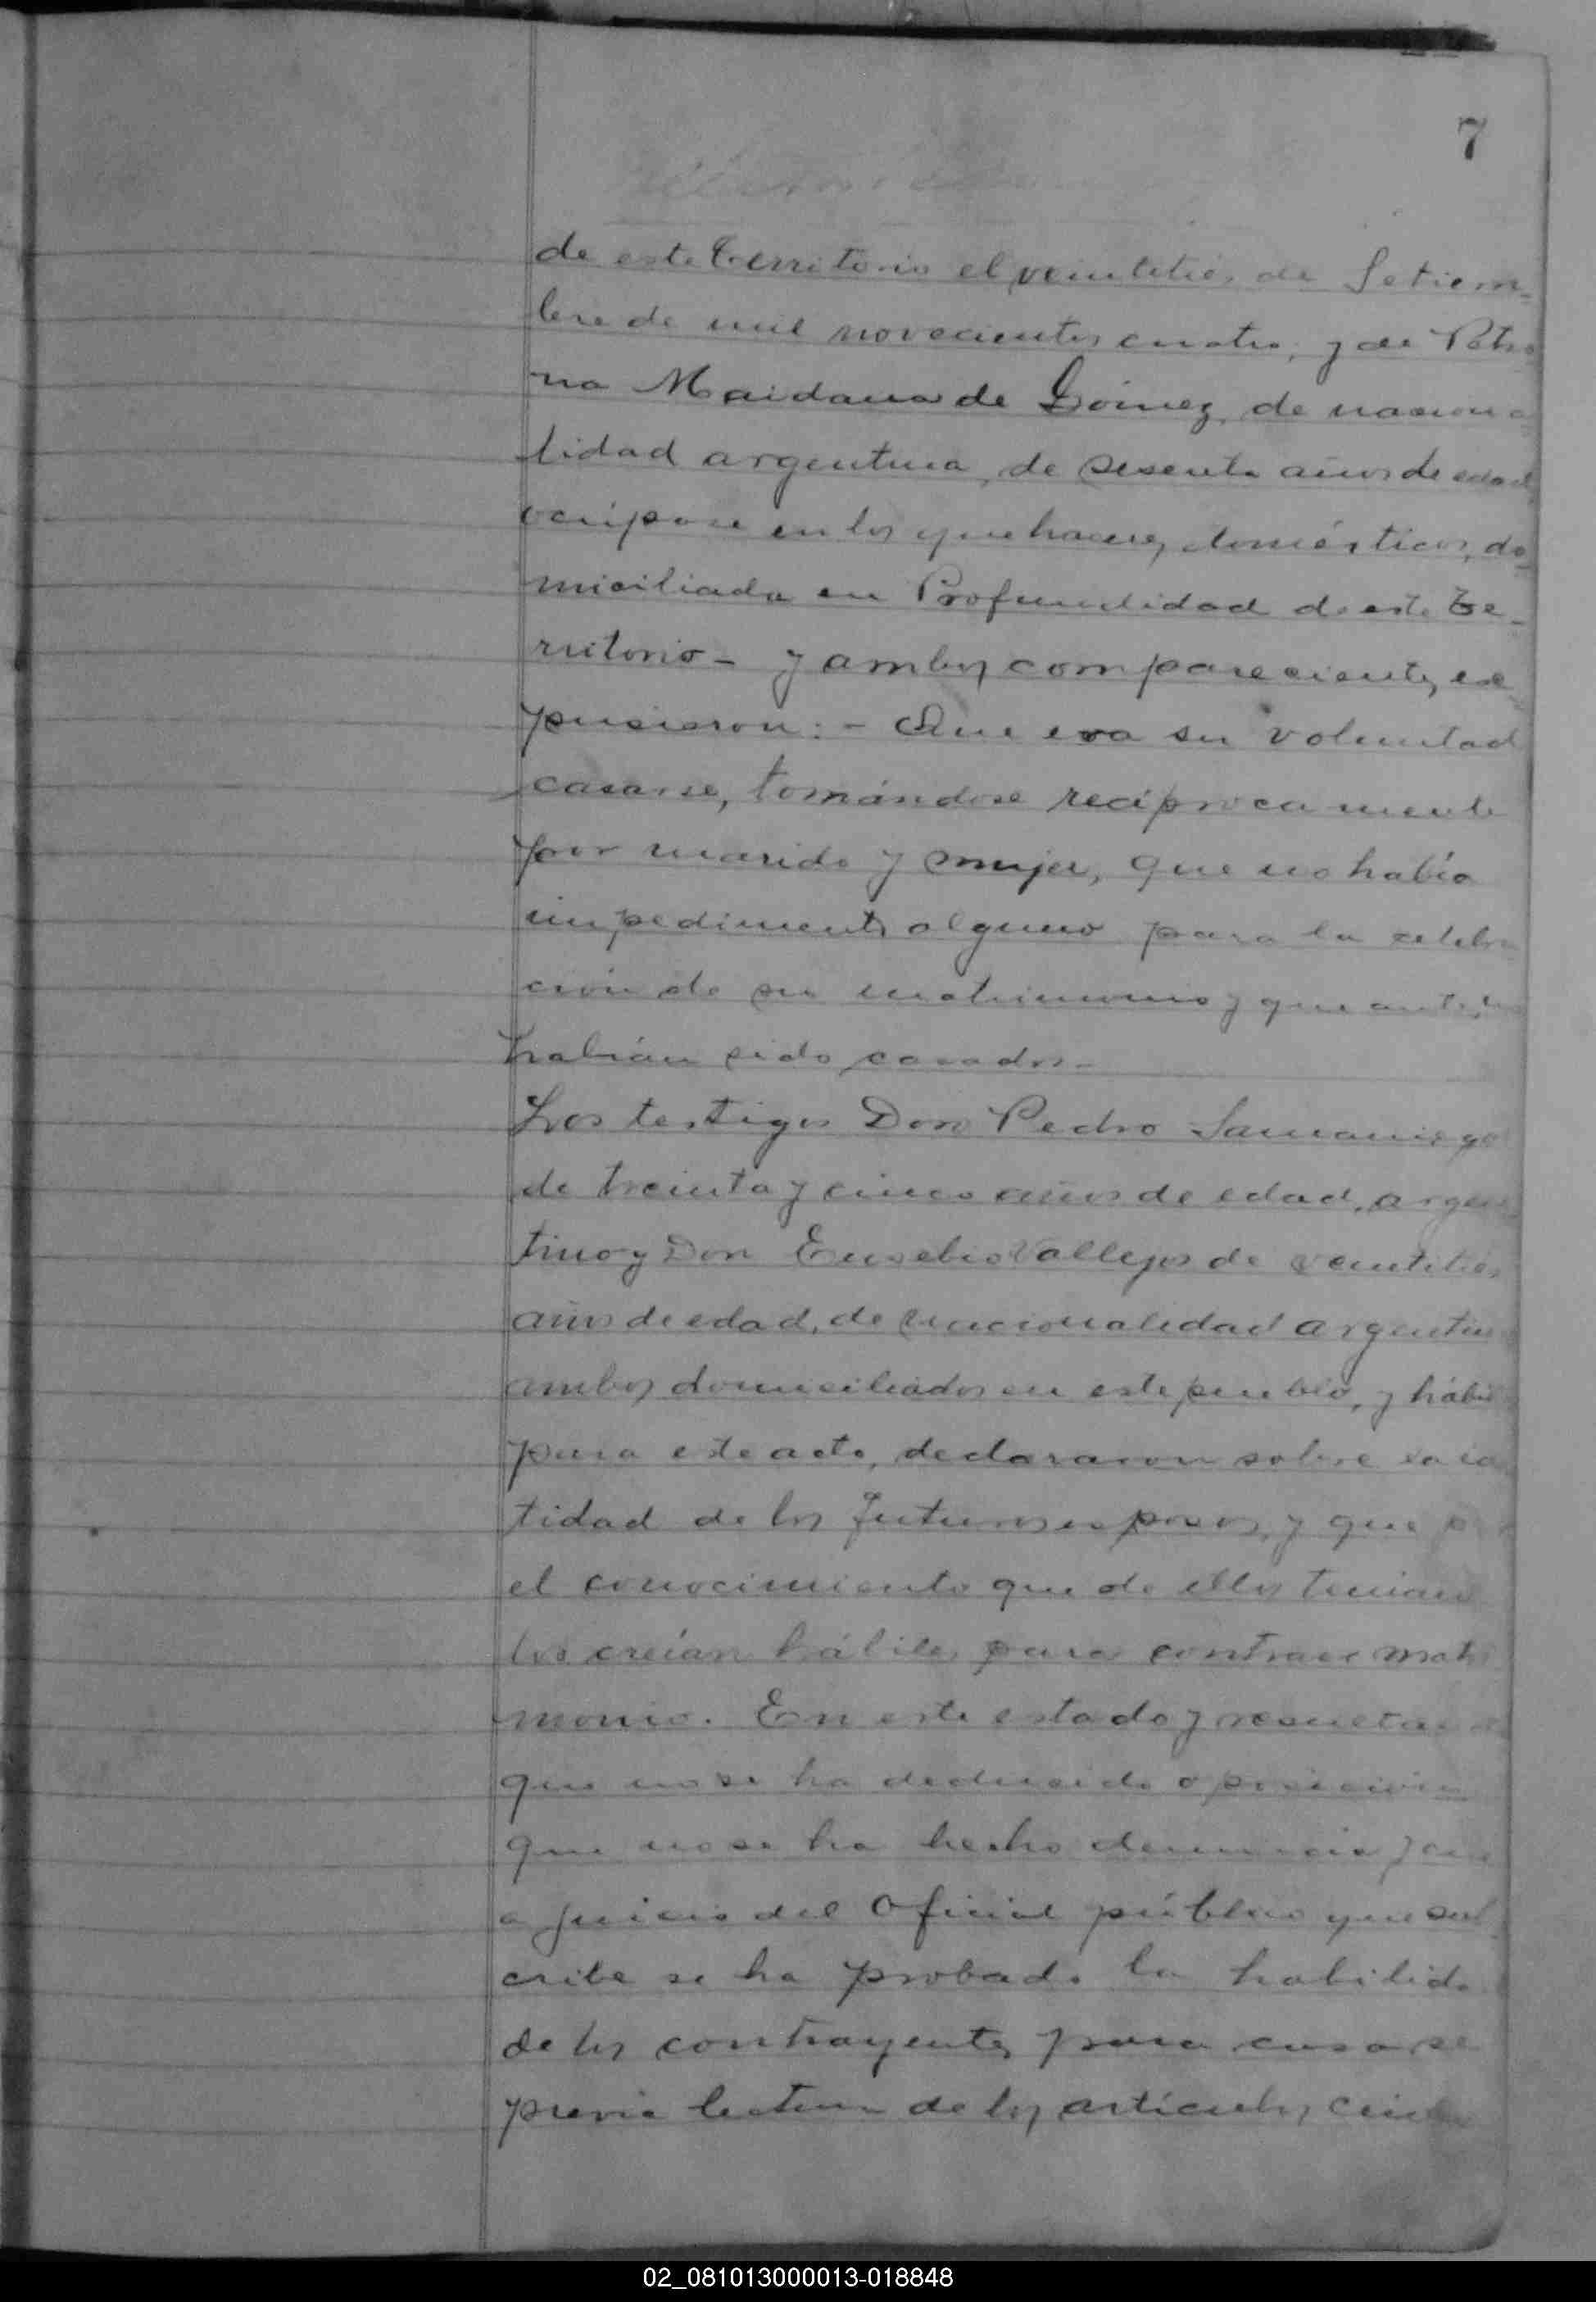 7
de este territorio el veintitrés de Setiem-
bre de mil novecientos cuatro, y de Petro
na Maidana de Gómez, de naciona
lidad argentina, de sesenta años de edad
ocúpase en los quehaceres domésticos, do-
miciliada en Profundidad de este te-
rritorio - y ambos comparecientes ex
pusieron: - Que era su voluntad
casarse, tomándose recíprocamente
por marido y mujer, que no había
impedimento alguno para la celebra
ción de su matrimonio y que antes no
habían sido casados -
Los testigos Don Pedro Samaniego
de treinta y cinco años de edad, argen
tino y Don Eusebio Vallejos de veintitrés
años de edad, de nacionalidad argentin
ambos domiciliados en este pueblo, y hábil
para este acto, declararon sobre la
tidad de los futuros esposos, y que p
el conocimiento que de ellos tenían
los creían hábiles para contraer matri
monio. En este estado y resultan
que no se ha deducido oposición
que no se ha hecho denuncia y que
a juicio del Oficial público que sus
cribe se ha probado la habilida
de los contrayentes para casarse
previa lectura de los artículos
02_081013000013-018848